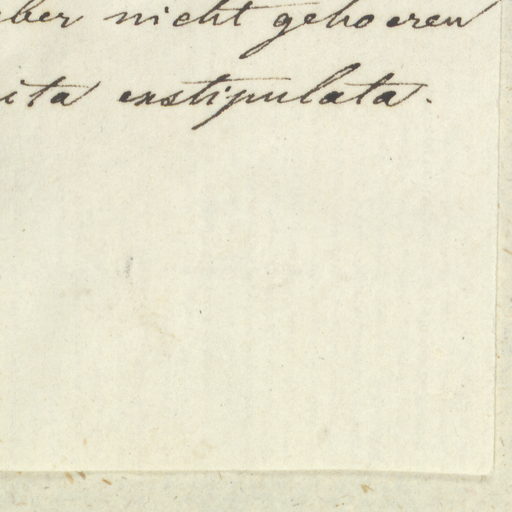 ber nicht gehoeren
ita exstipulata.